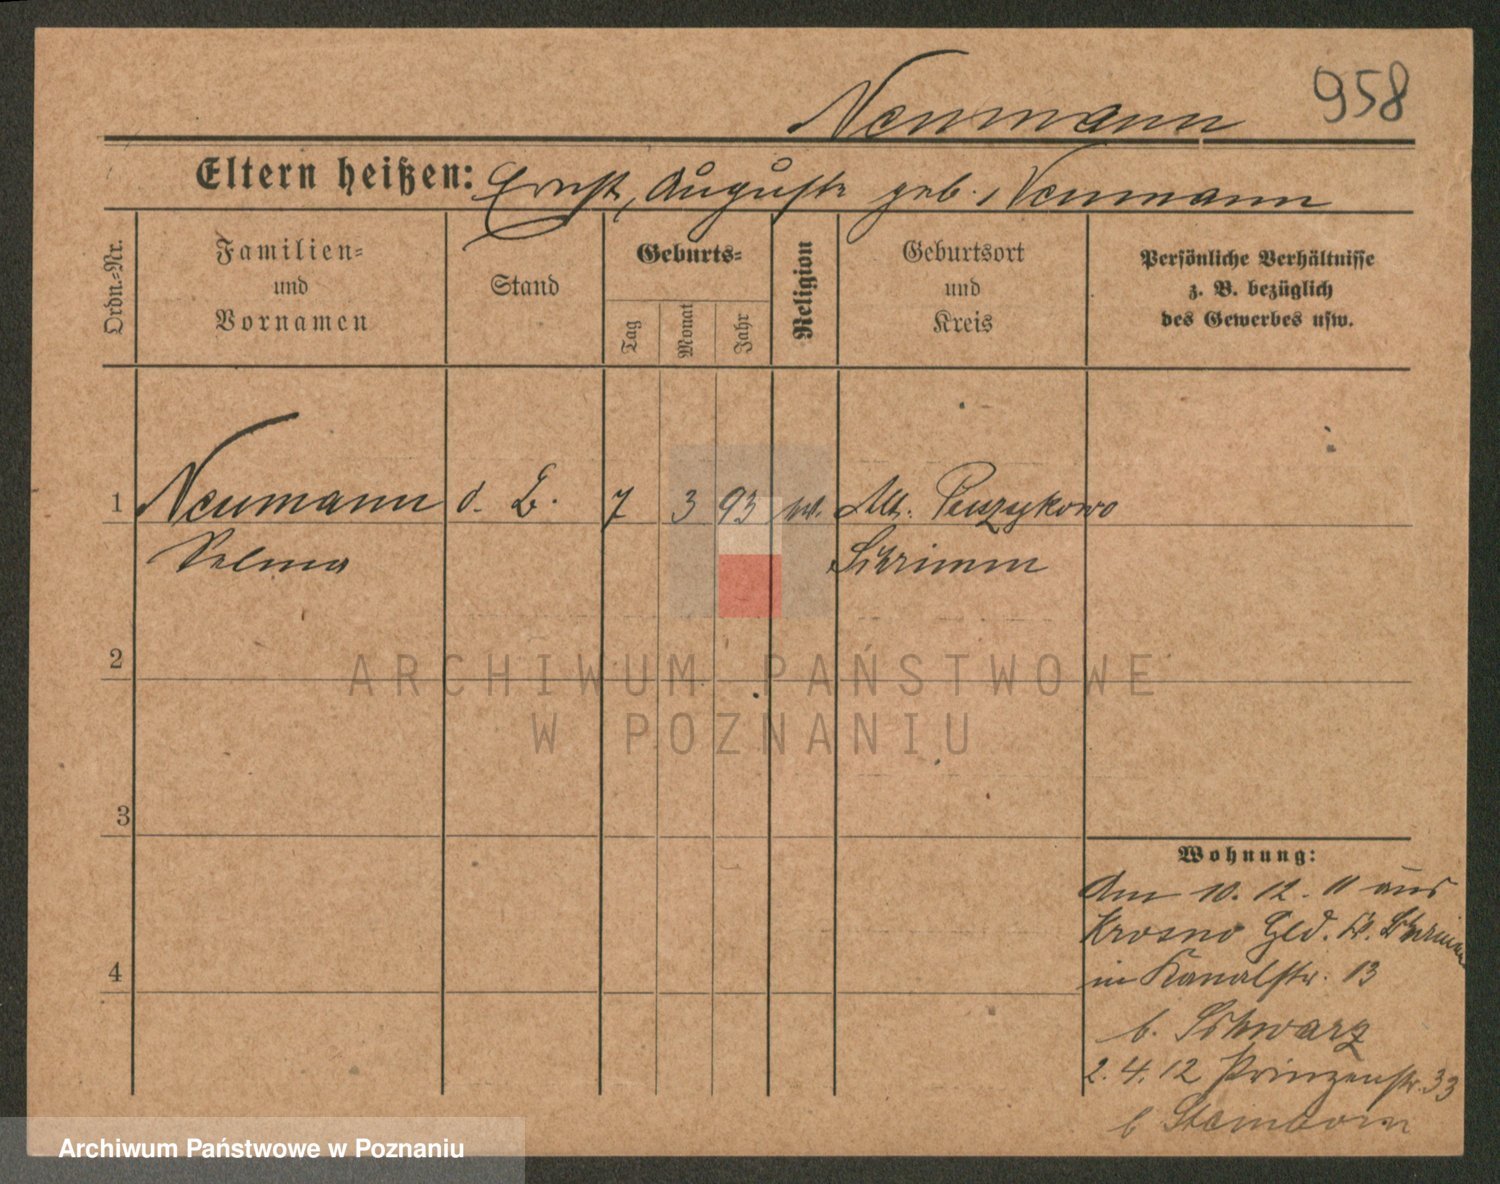 958
Neumann
Eltern heißen: Ernst, Auguste geb. Neumann
Ordn.-Nr.
Familien-
und
Vornamen
Stand
Geburts-
Tag
Monat
Jahr
Religion
Geburtsort
und
Kreis
Persönliche Verhältnisse
z. B. bezüglich
des Gewerbes usw.
1 Neumann d. 7 3 93 Alt. Puszykowo
Selma Schrimm
2
ARCHIWUM PAŃSTWOWE
W POZNANIU
3
Wohnung:
Am 10. 12. 11 aus
Krosno Hld. Kr. Schrimm
4
in Kanalstr. 13
b. Schwarz
2. 4. 12 Prinzenstr. 33
b Steinborn
Archiwum Państwowe w Poznaniu